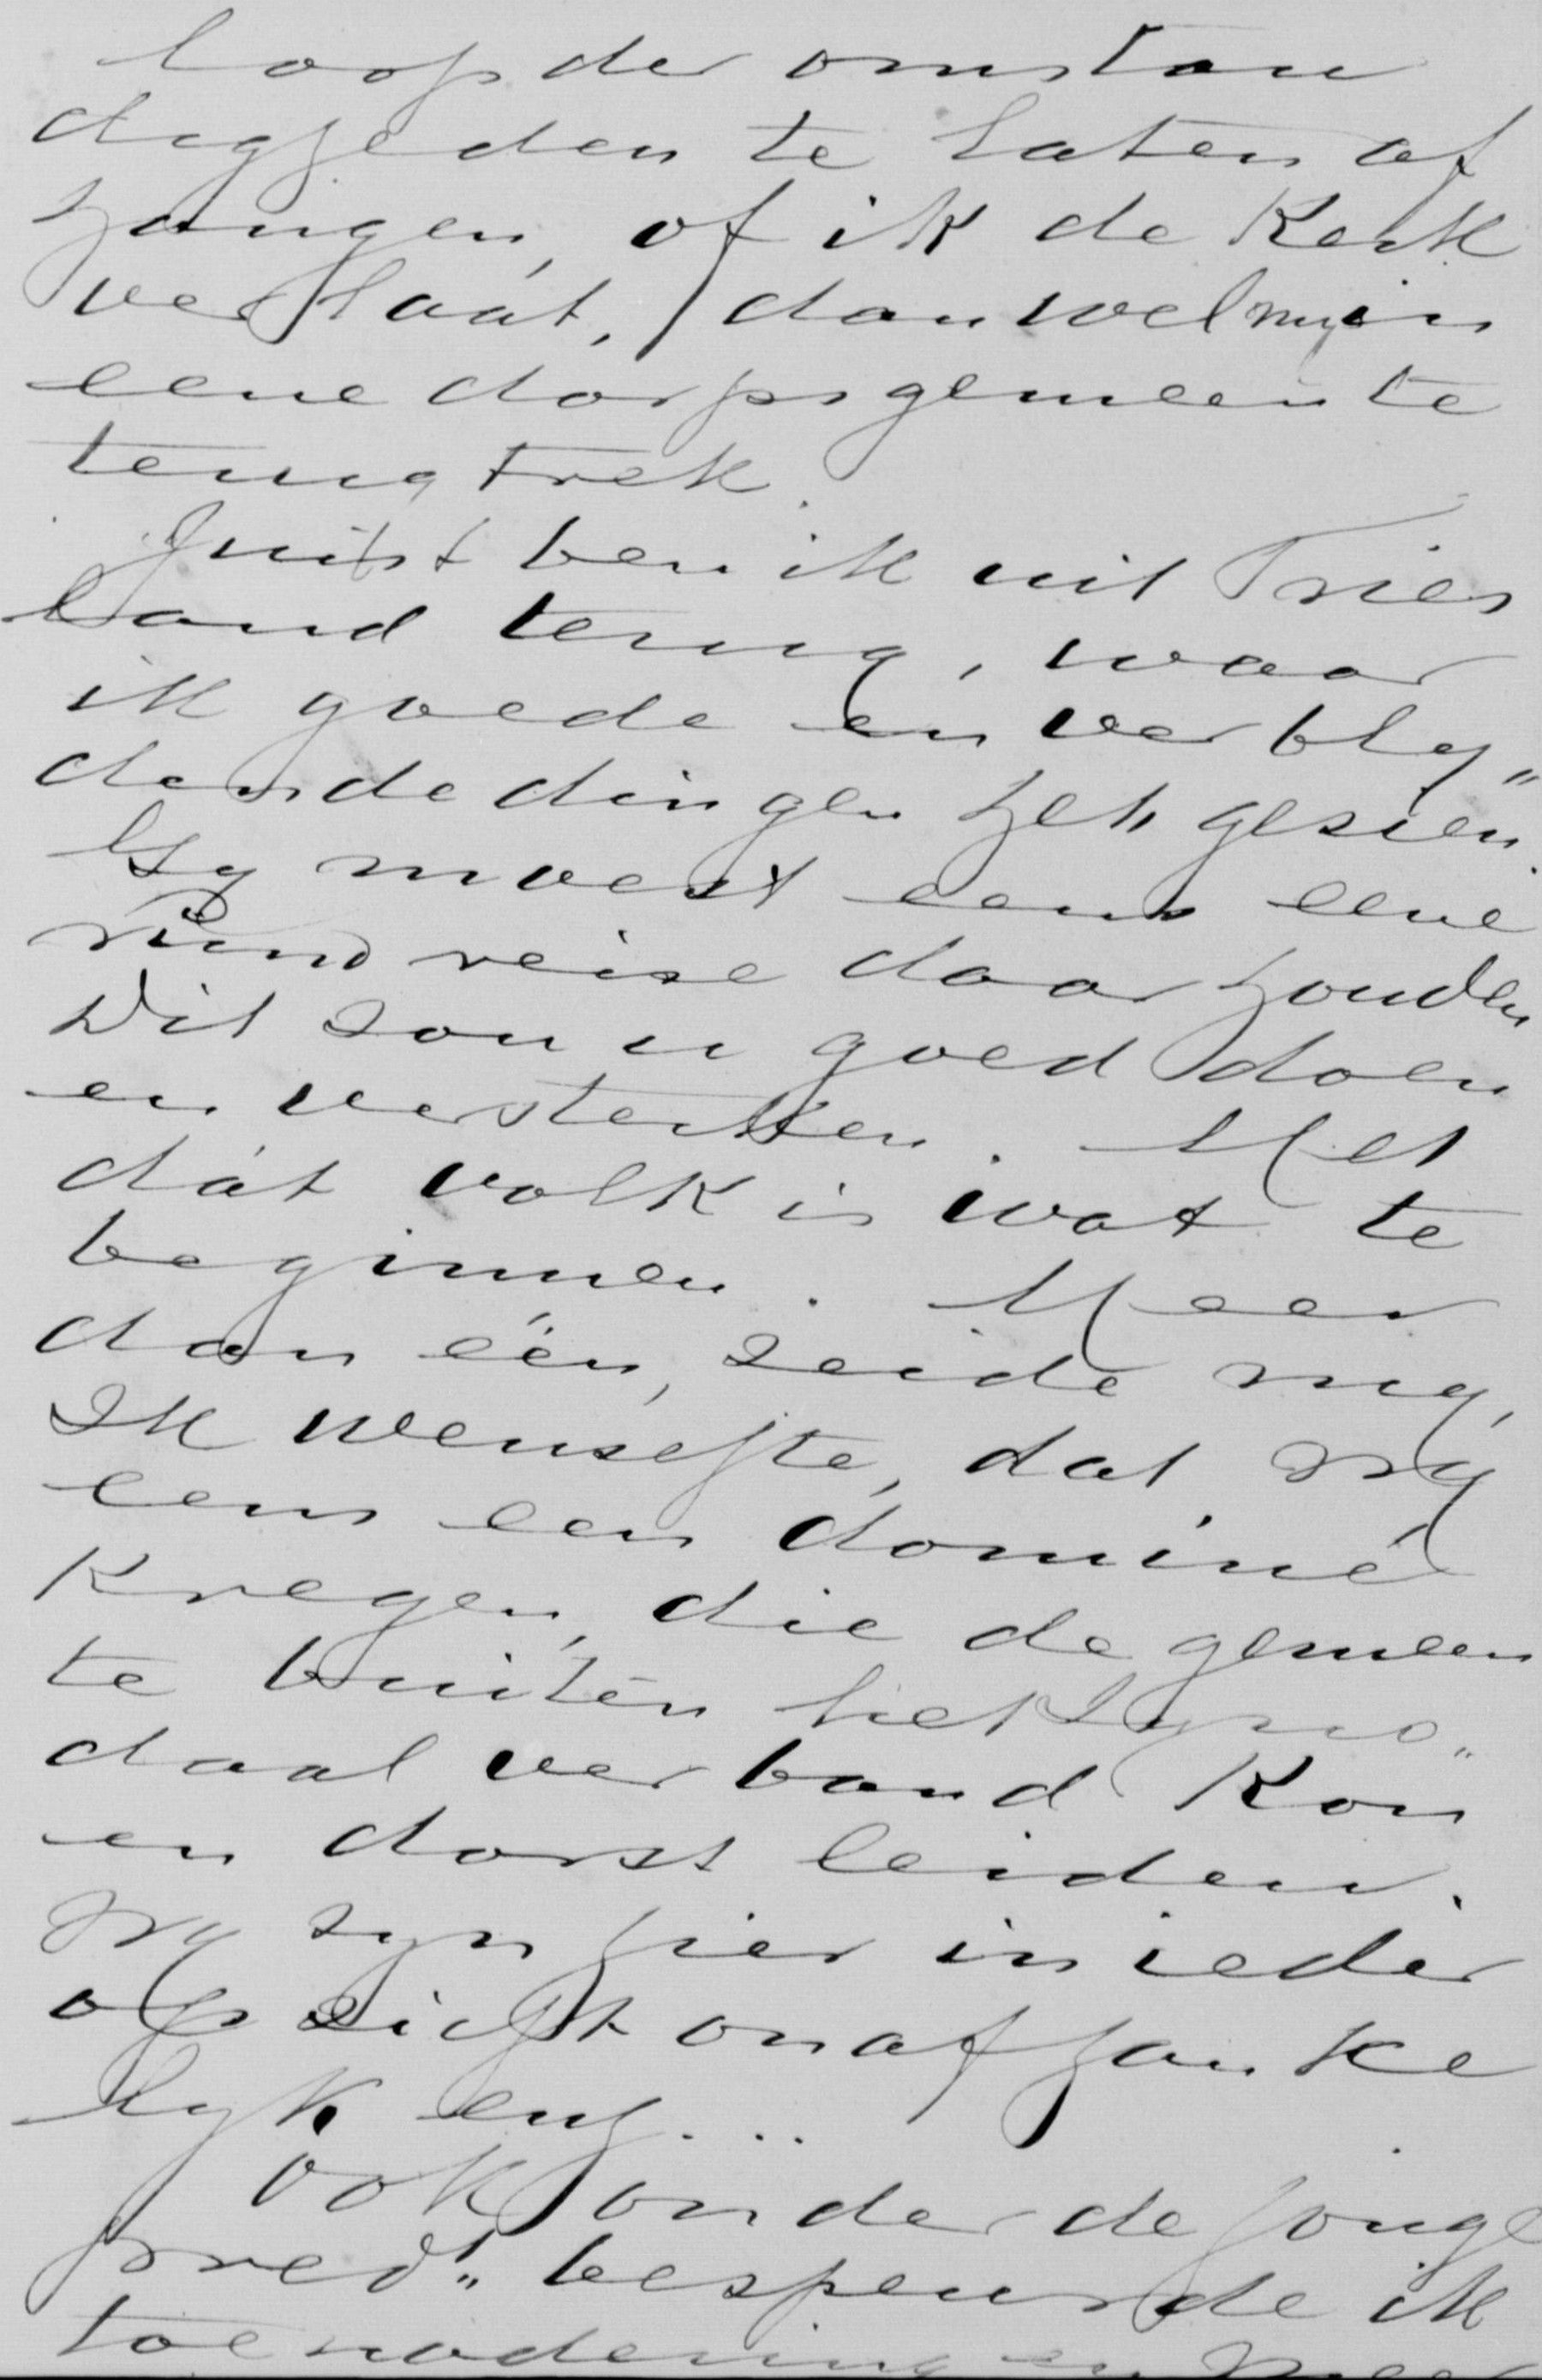 loop der omstan
digheden te laten af
hangen, of ik de Kerk
verlaat, dan wel my in
eene dorpsgemeente
terugtrek.
Juist ben ik uit Fries
land terug, waar
ik goede en verbly„
dende dingen heb gesien.
Gy moest eens eene
rund reise daar houden
Dit sou u goed doen
en versterken. Met
dát volk is wat te
beginnen. Meer
dan één, seide my,
Ik wenschte, dat wy
eens een dominé
kregen, die de gemeen
te buiten het Syno„
daal verband kon
en dorst leiden.
Wy syn hier in ieder
opsicht onafhanke
lyk enz...
Ook onder de jonge
predt„ bespeurde ik
toenadering en meer